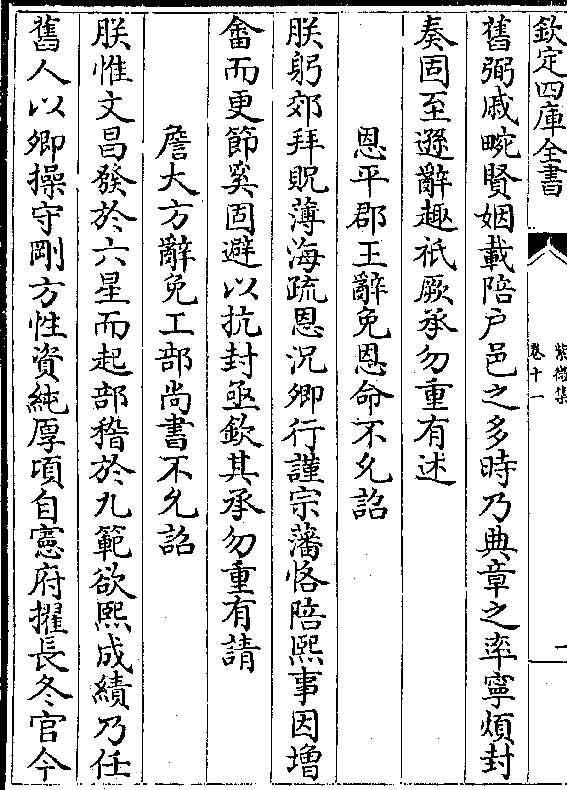 欽定四庫全書
紫微集
卷十一
二
舊弼戚畹賢姻載陪户邑之多時乃典章之率寧煩封
奏固至遜辭趣祇厥承勿重有述
恩平郡王辭免恩命不允詔
朕躬郊拜貺薄海疏恩況卿行謹宗藩恪陪熙事因增
畬而更節奚固避以抗封亟欽其承勿重有請
詹大方辭免工部尚書不允詔
朕惟文昌發於六星而起部稽於九範欲熙成績乃任
舊人以卿操守剛方性資純厚頃自憲府擢長冬官今